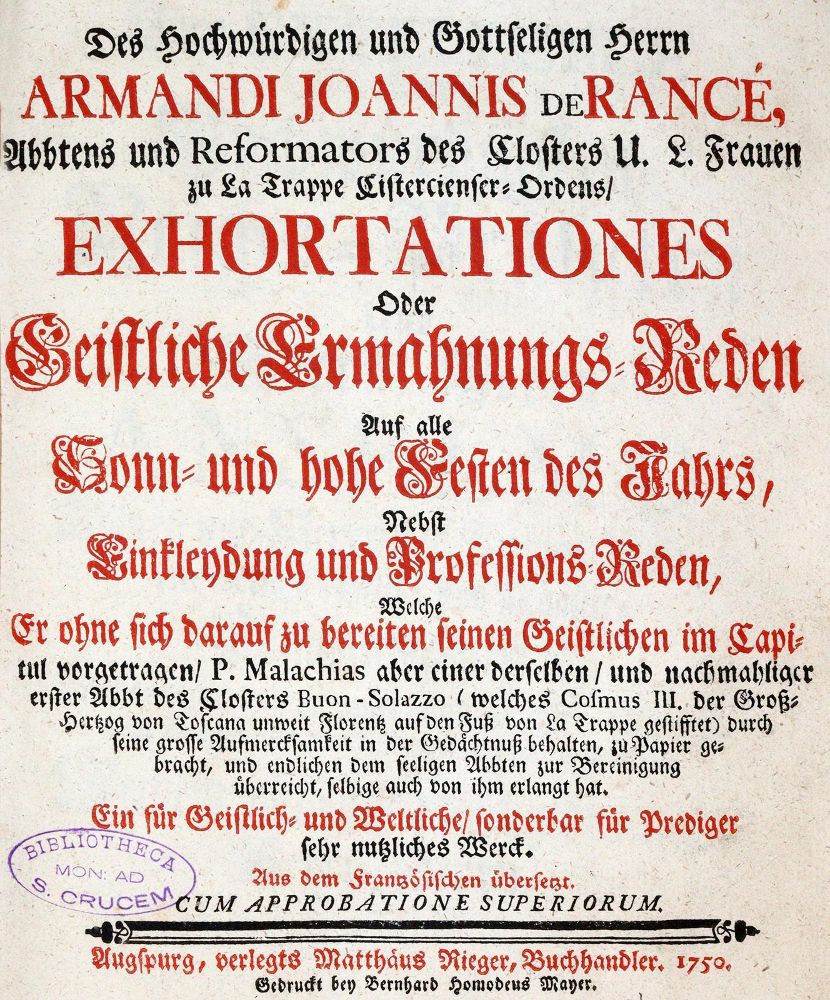 Des Hochwürdigen und Gottseligen Herrn
ARMANDI JOANNIS DE RANCÉ,
Abbtens und Reformators des Closters U. L. Frauen
zu La Trappe Cistercienser-Ordens/
EXHORTATIONES
Oder
Geistliche Ermahnungs-Reden
Auf alle
Sonn- und hohe Festen des Jahrs,
Nebst
Einkleydung und Professions-Reden,
Welche
Er ohne sich darauf zu bereiten seinen Geistlichen im Capi-
tul vorgetragen/ P. Malachias aber einer derselben/ und nachmahliger
erster Abbt des Closters Buon-Solazzo (welches Cosmus III. der Groß-
Hertzog von Toscana unweit Florentz auf den Fuß von La Trappe gestifftet) durch
seine grosse Aufmercksamkeit in der Gedächtnuß behalten, zu Papier ge-
bracht, und endlichen dem seeligen Abbten zur Bereinigung
überreicht, selbige auch von ihm erlangt hat.
Ein für Geistlich- und Weltliche/ sonderbar für Prediger
sehr nutzliches Werck.
Aus dem Frantzösischen übersetzt.
CUM APPROBATIONE SUPERIORUM.
BIBLIOTHECA
MON: AD
S. CRUCEM
Augspurg, verlegts Matthäus Rieger, Buchhandler. 1750.
Gedruckt bey Bernhard Homodeus Mayer.